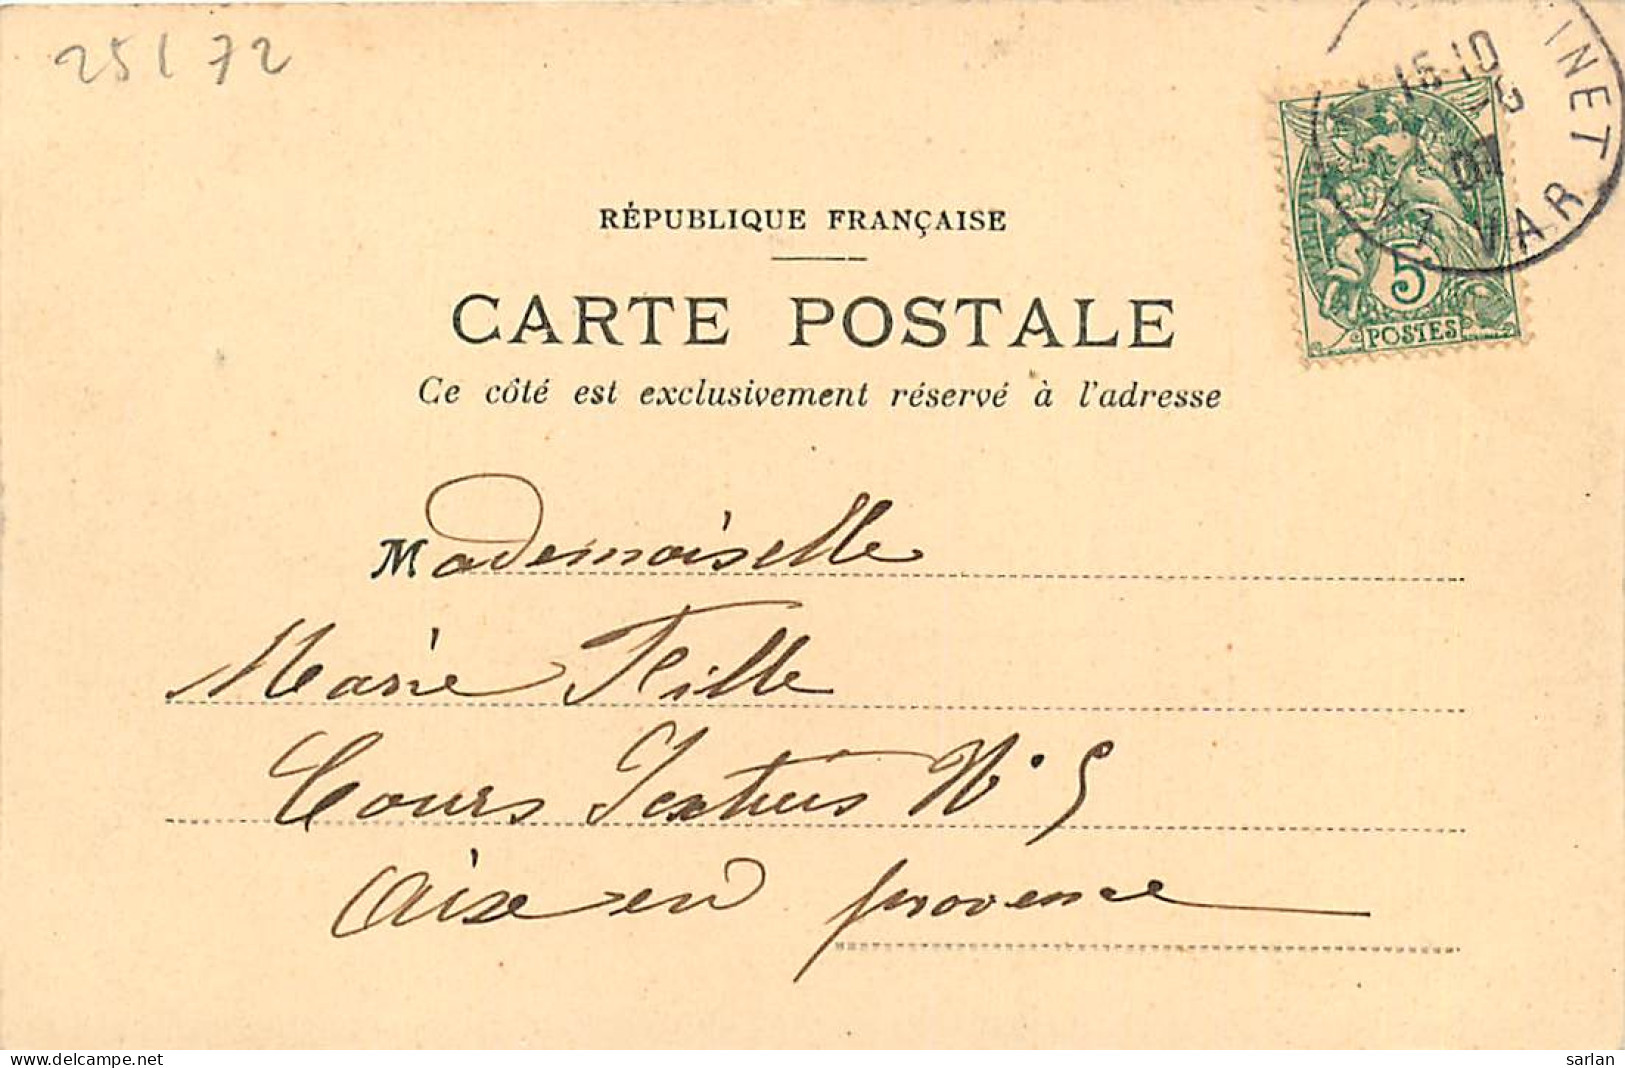 25172
INET
15 10
VAR
5
POSTES
RÉPUBLIQUE FRANÇAISE
CARTE POSTALE
Ce côté est exclusivement réservé à l'adresse
Mademoiselle
Marie Fille
Cours Sextius N° 5
Aix en provence
sarlan
delcampe.net